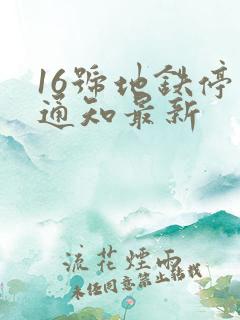 16號地鉄停
通知最新
流花煙雨
未经同意禁止转载